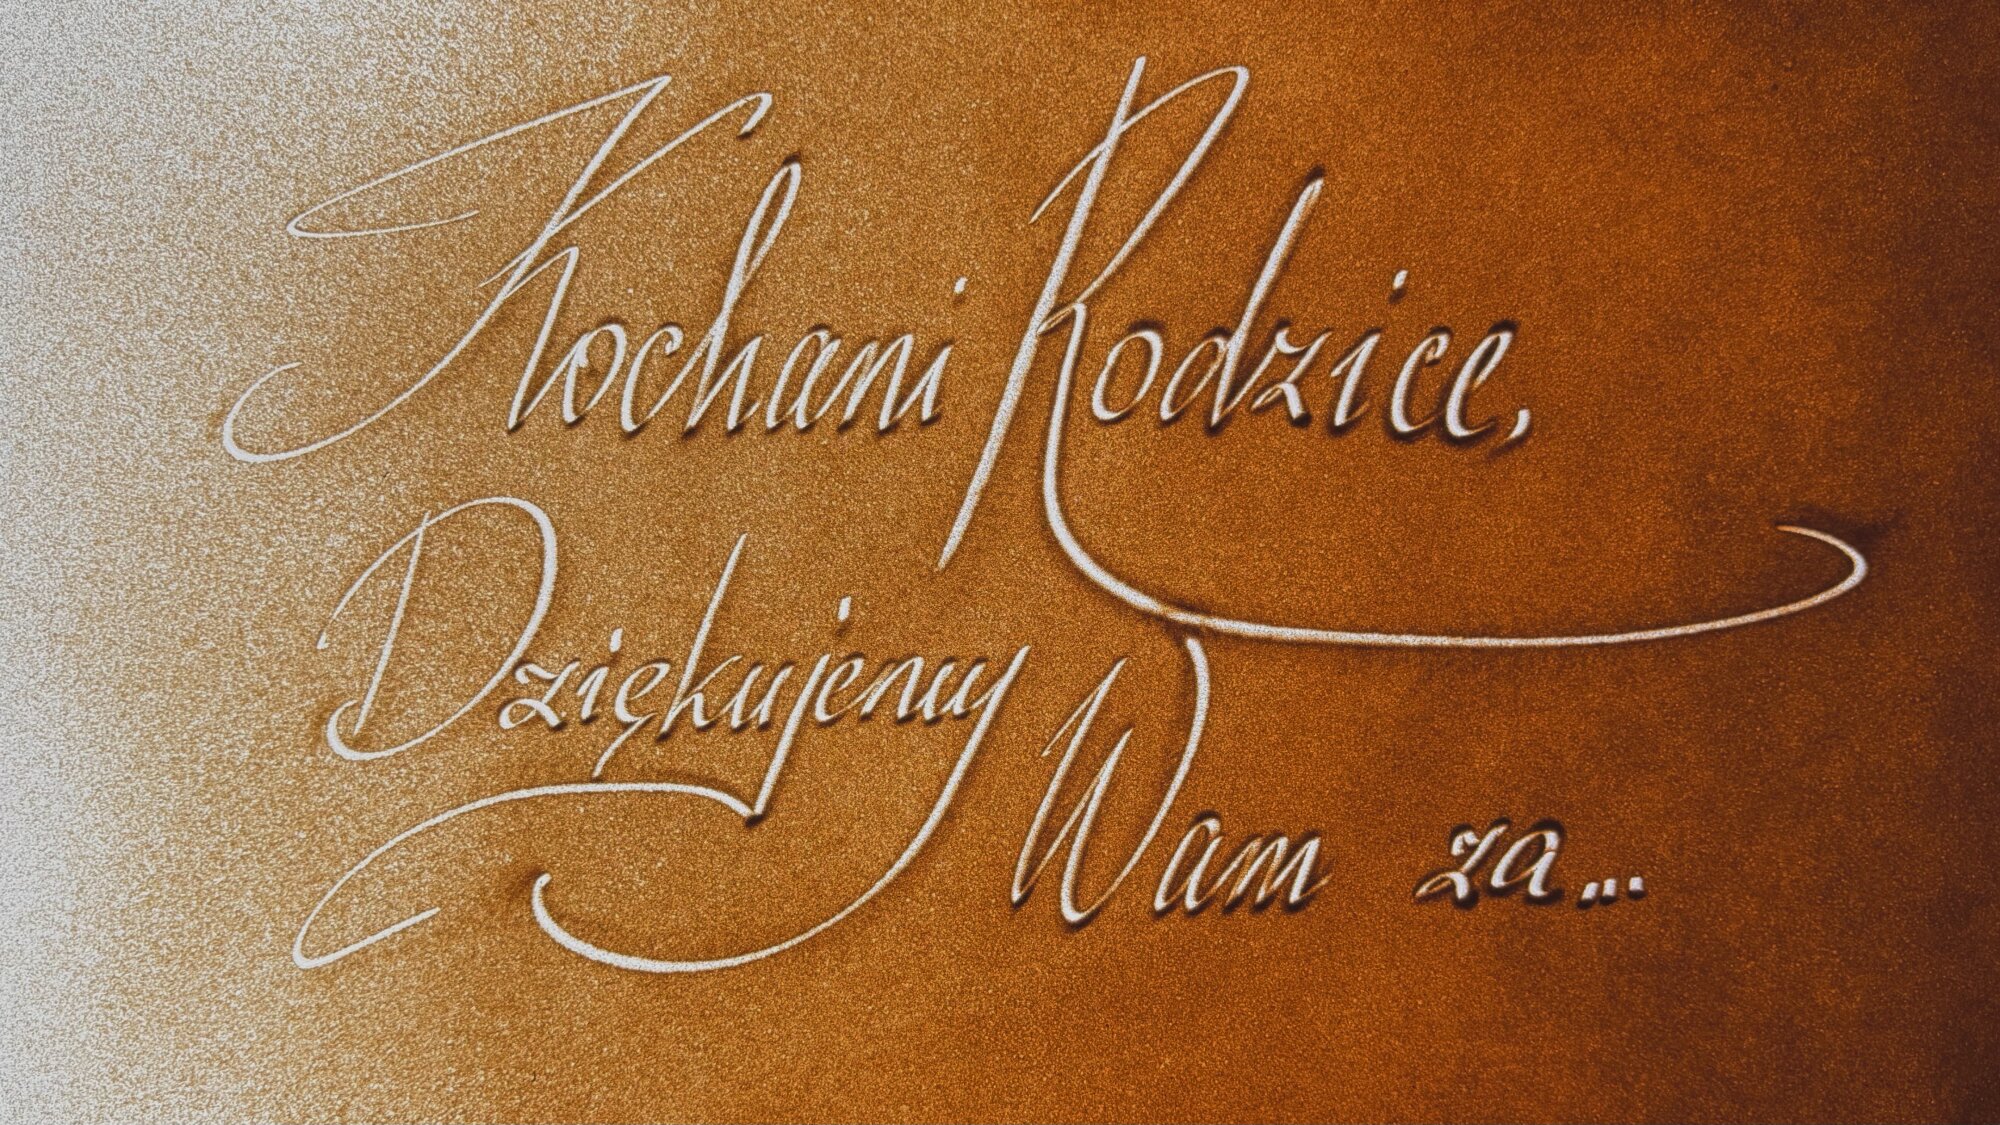 Kochani Rodzice,
Dziękujemy Wam za...